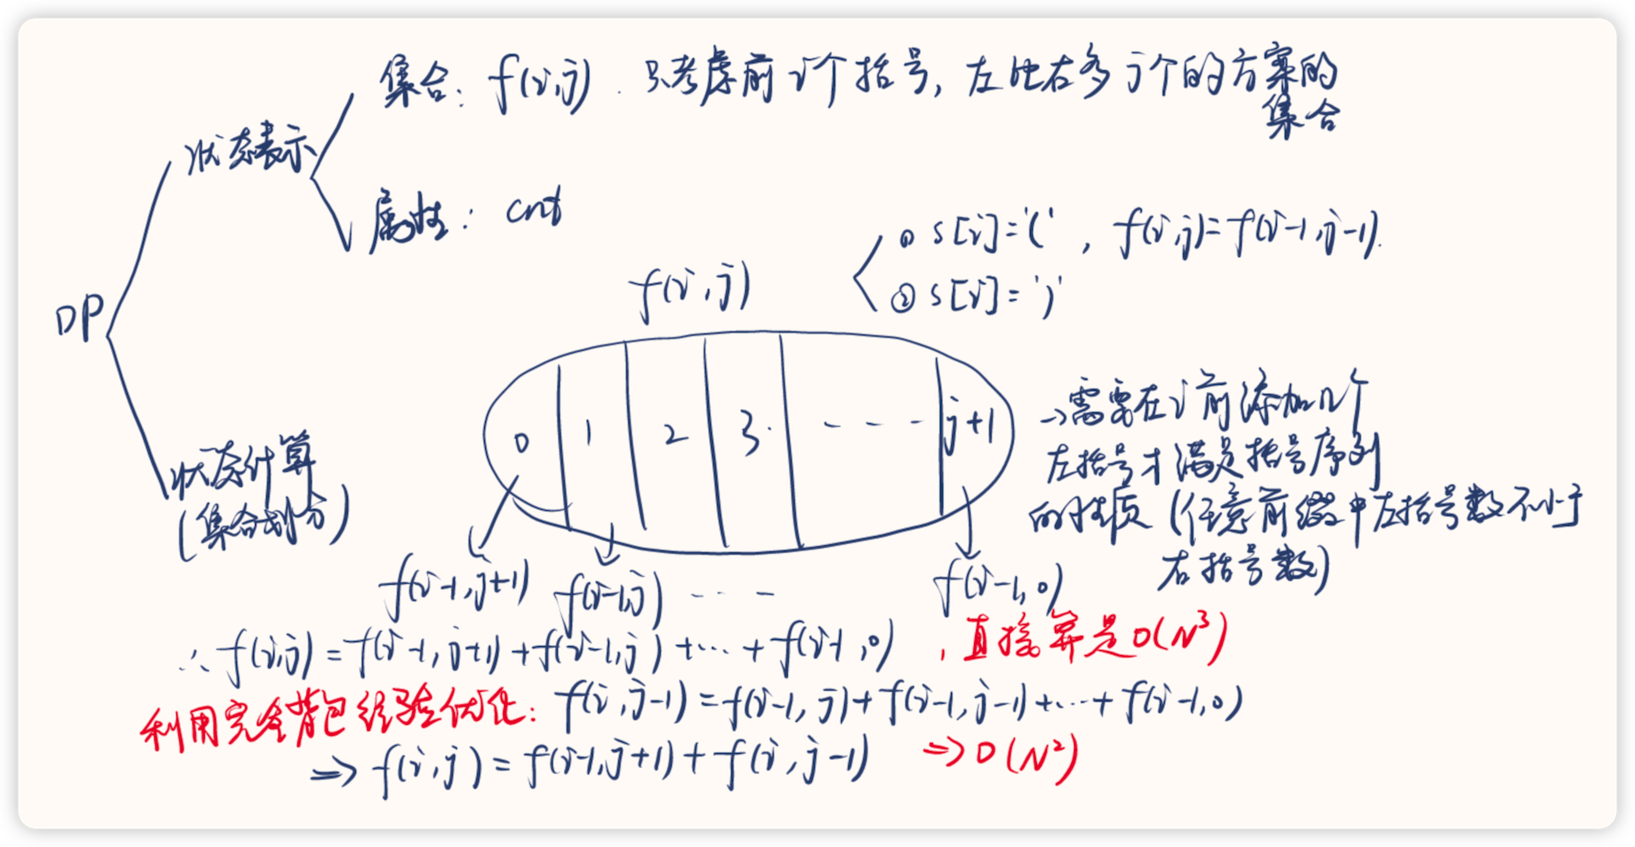 集合: f(i,j). 只考虑前i个括号, 左比右多j个的方案的
集合
状态表示
属性: cnt
① s[i]='(' , f(i,j)=f(i-1,j-1).
② s[i]=')'
f(i,j)
DP
0 1 2 3. --- j+1
→需要在i前添加几个
左括号才满足括号序列
的性质 (任意前缀中左括号数不小于
右括号数)
状态计算
(集合划分)
f(i-1,j+1) f(i-1,j) --- f(i-1,0)
∴ f(i,j)=f(i-1,j+1)+f(i-1,j)+…+f(i-1,0) , 直接算是O(N³)
利用完全背包经验优化: f(i,j-1)=f(i-1,j)+f(i-1,j-1)+…+f(i-1,0)
⇒ f(i,j)=f(i-1,j+1)+f(i,j-1) ⇒ O(N²)